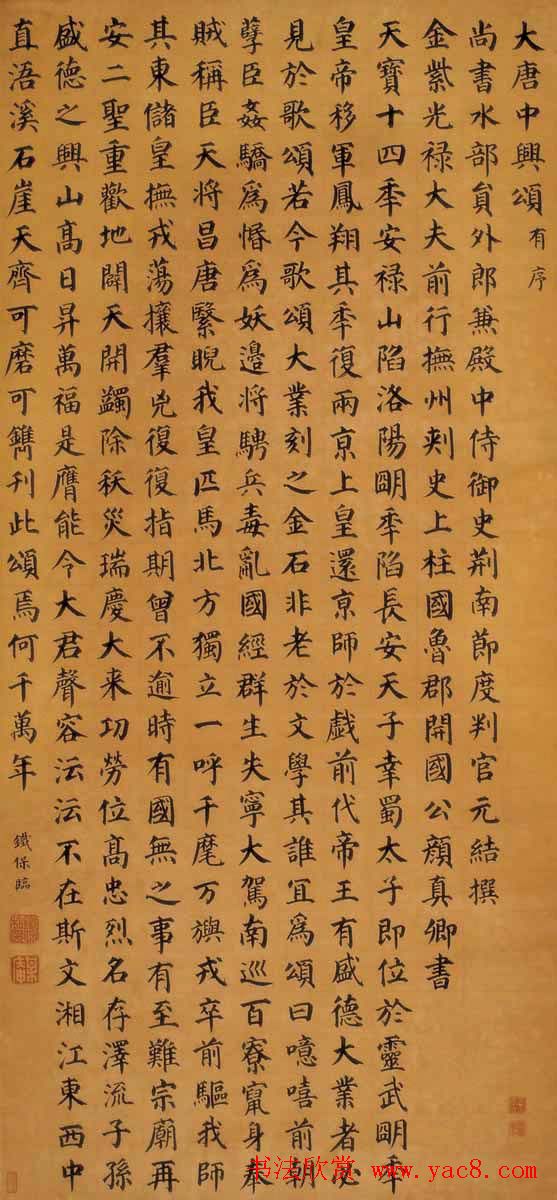 大唐中興頌有序
尚書水部貟外郎兼殿中侍御史荆南節度判官元結撰
金紫光禄大夫前行撫州刾史上柱國魯郡開國公顔真卿書
天寶十四秊安禄山陷洛陽朙秊陷長安天子幸蜀太子即位於靈武朙秊
皇帝移軍鳳翔其秊復兩亰上皇還亰師於戯前代帝王有盛德大業者必
見於歌頌若今歌頌大業刻之金石非老於文學其誰冝爲頌曰噫嘻前朝
孽臣姦驕爲惛爲妖邉將騁兵毒亂國經群生失寧大駕南巡百寮竄身奉
賊稱臣天將昌唐繄睨我皇匹馬北方獨立一呼千麾万旟戎卒前驅我師
其東儲皇撫戎蕩攘羣兇復復指期曾不逾時有國無之事有至難宗廟再
安二聖重歡地闢天開蠲除秡災瑞慶大来㓛勞位髙忠烈名存澤流子孫
盛德之興山髙日昇萬福是膺能令大君聲容沄沄不在斯文湘江東西中
直浯溪石崖天齊可磨可鐫刊此頌焉何千萬年
鐵保臨
书法欣赏 www.yac8.com